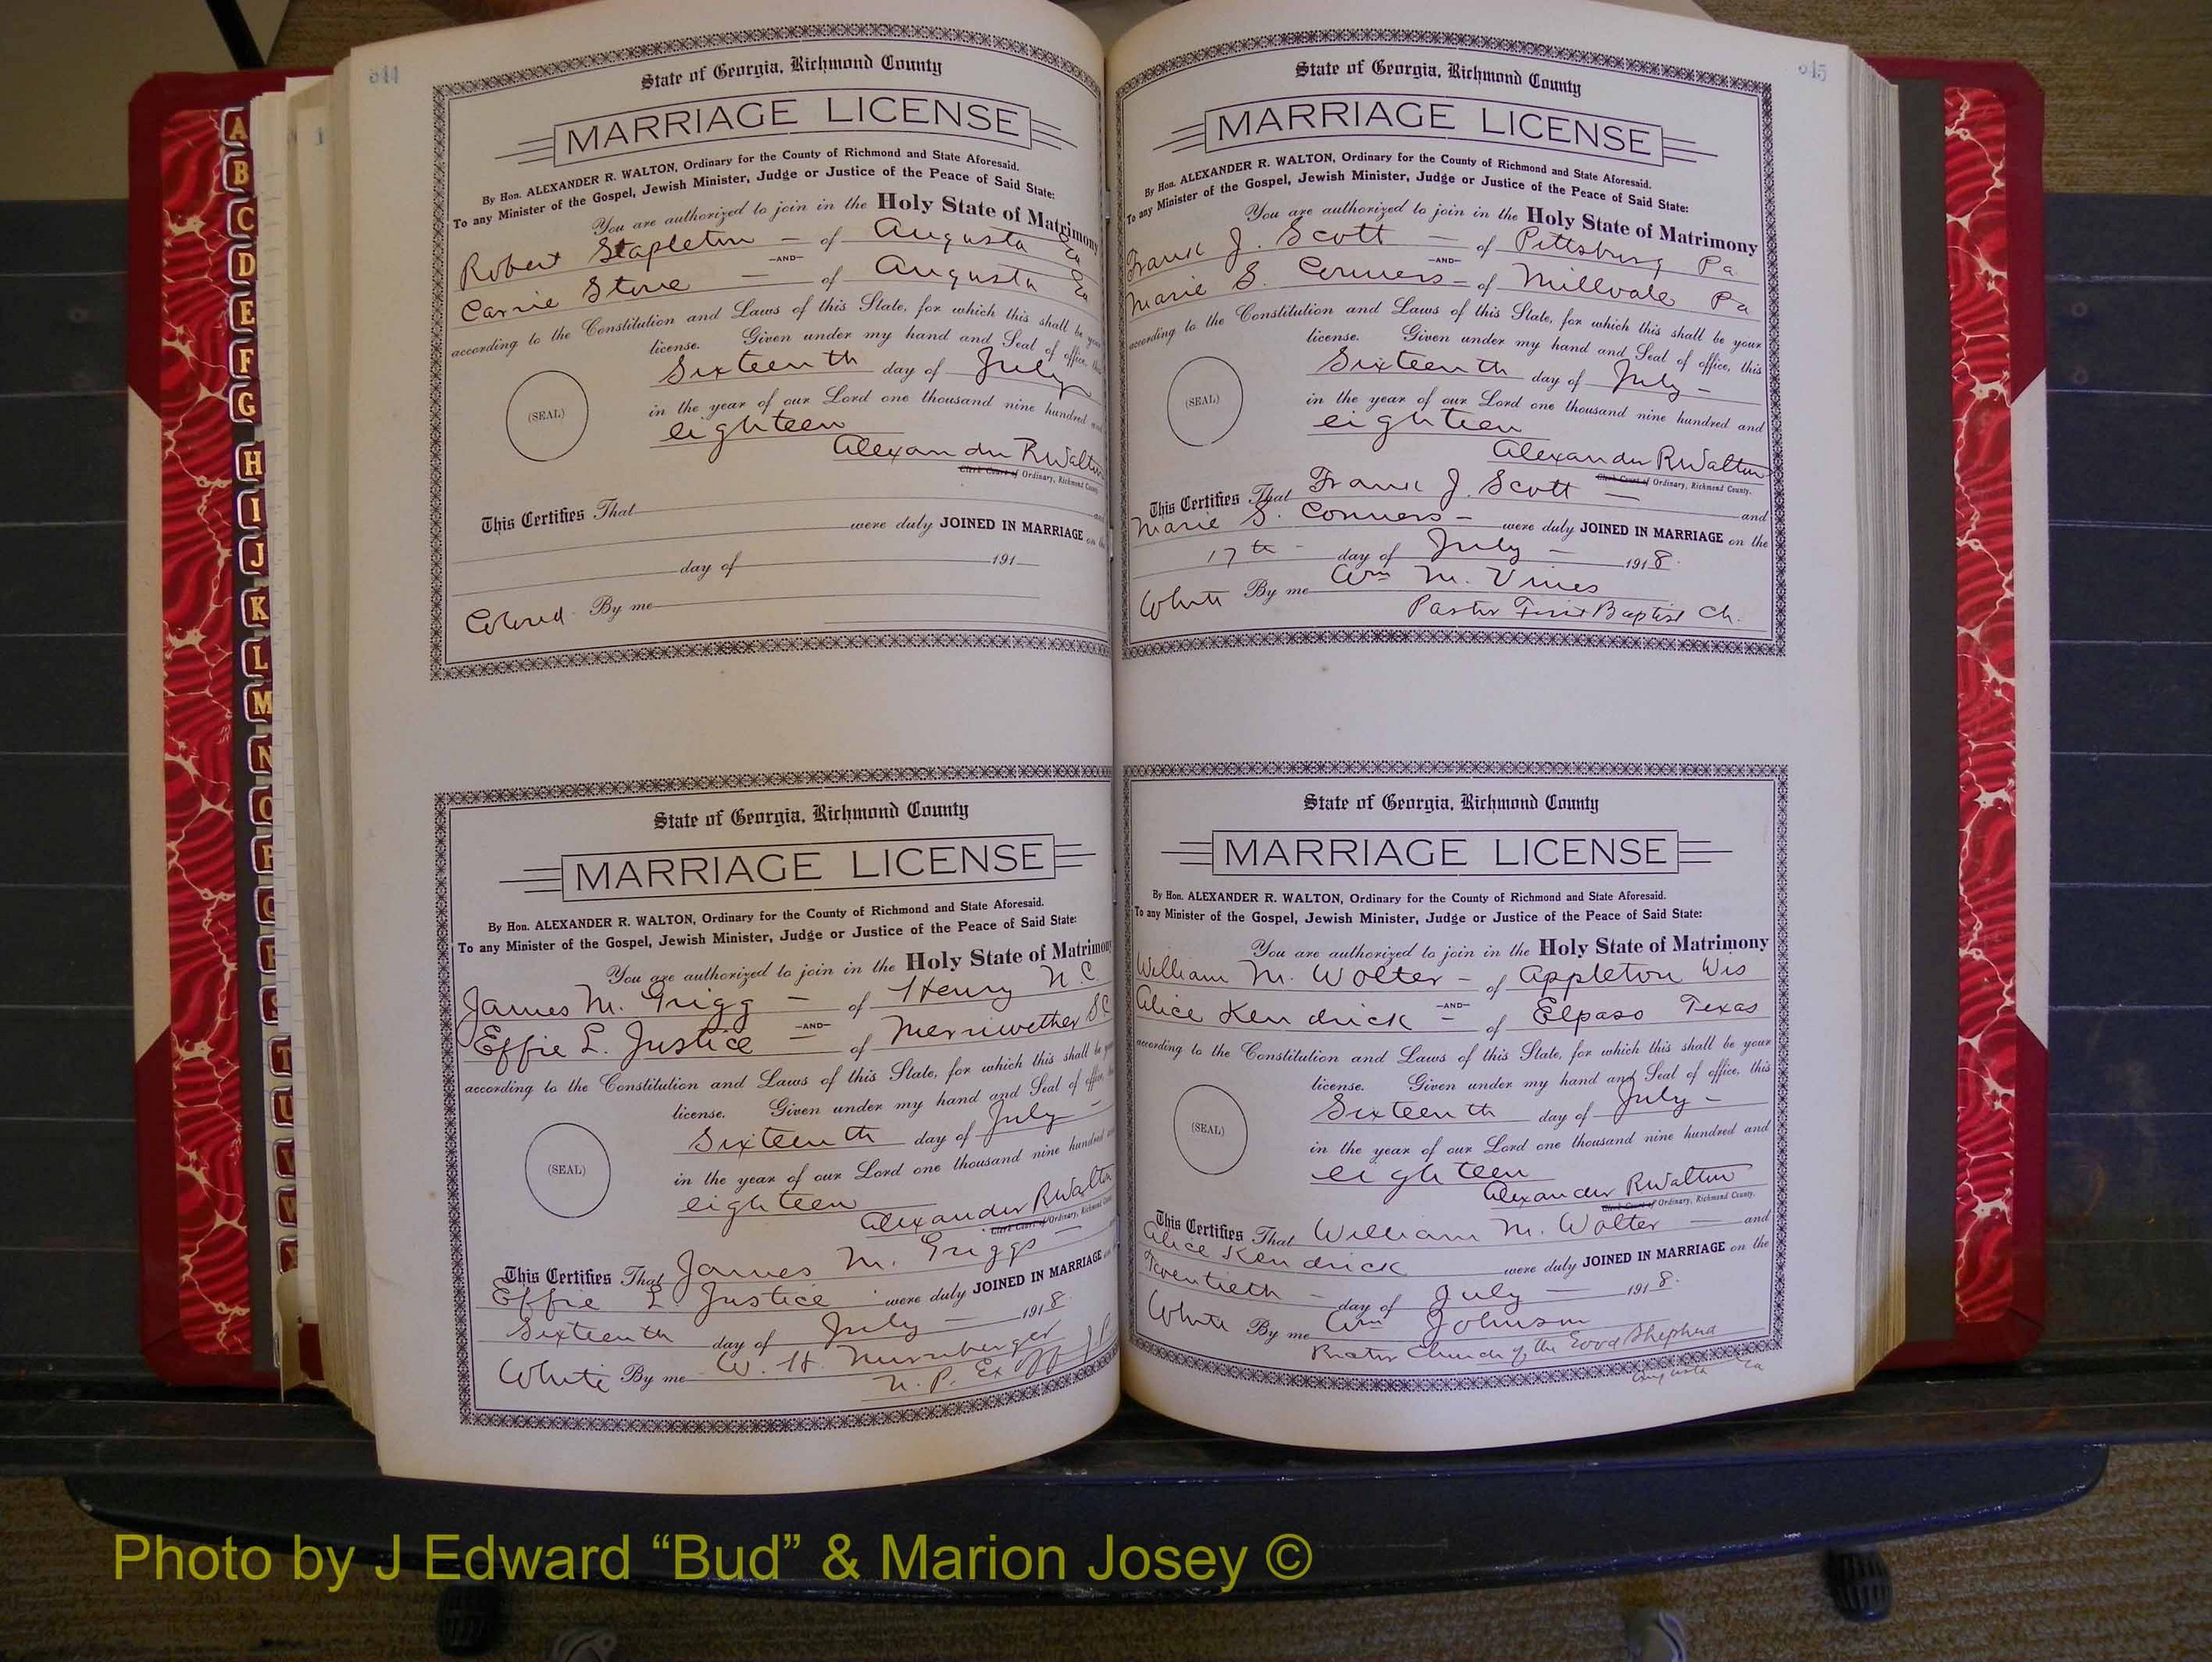 544
State of Georgia, Richmond County
MARRIAGE LICENSE
By Hon. ALEXANDER R. WALTON, Ordinary for the County of Richmond and State Aforesaid.
To any Minister of the Gospel, Jewish Minister, Judge or Justice of the Peace of Said State:
You are authorized to join in the Holy State of Matrimony
Robert Stapleton — of Augusta Ga
—AND—
Carrie Stone — of Augusta Ga
according to the Constitution and Laws of this State, for which this shall be your
license. Given under my hand and Seal of office, this
Sixteenth day of July
(SEAL)
in the year of our Lord one thousand nine hundred and
eighteen
Alexander R Walton
Clerk Court of Ordinary, Richmond County.
This Certifies That and
were duly JOINED IN MARRIAGE on the
day of 191
Colored By me
State of Georgia, Richmond County
MARRIAGE LICENSE
By Hon. ALEXANDER R. WALTON, Ordinary for the County of Richmond and State Aforesaid.
To any Minister of the Gospel, Jewish Minister, Judge or Justice of the Peace of Said State:
You are authorized to join in the Holy State of Matrimony
James M. Grigg — of Henry N.C
—AND—
Effie L. Justice — of Merriwether SC
according to the Constitution and Laws of this State, for which this shall be your
license. Given under my hand and Seal of office, this
Sixteenth day of July —
(SEAL)
in the year of our Lord one thousand nine hundred and
eighteen
Alexander R Walton
Clerk Court of Ordinary, Richmond County
This Certifies That James M. Griggs —
Effie L. Justice were duly JOINED IN MARRIAGE on
Sixteenth day of July — 1918.
White By me W. H. Nurnberger
N. P. Ex Off J P
545
State of Georgia, Richmond County
MARRIAGE LICENSE
By Hon. ALEXANDER R. WALTON, Ordinary for the County of Richmond and State Aforesaid.
To any Minister of the Gospel, Jewish Minister, Judge or Justice of the Peace of Said State:
You are authorized to join in the Holy State of Matrimony
Frank J. Scott — of Pittsburg Pa
—AND—
Marie S. Conners — of Millvale Pa
according to the Constitution and Laws of this State, for which this shall be your
license. Given under my hand and Seal of office, this
Sixteenth day of July —
(SEAL)
in the year of our Lord one thousand nine hundred and
eighteen
Alexander R Walton
Clerk Court of Ordinary, Richmond County.
This Certifies That Frank J. Scott — and
Marie S. Conners — were duly JOINED IN MARRIAGE on the
17th — day of July — 1918.
White By me Wm M. Vines
Pastor First Baptist Ch.
State of Georgia, Richmond County
MARRIAGE LICENSE
By Hon. ALEXANDER R. WALTON, Ordinary for the County of Richmond and State Aforesaid.
To any Minister of the Gospel, Jewish Minister, Judge or Justice of the Peace of Said State:
You are authorized to join in the Holy State of Matrimony
William M. Wolter — of Appleton Wis
—AND—
Alice Kendrick — of Elpaso Texas
according to the Constitution and Laws of this State, for which this shall be your
license. Given under my hand and Seal of office, this
Sixteenth day of July —
(SEAL)
in the year of our Lord one thousand nine hundred and
eighteen
Alexander R Walton
Clerk Court of Ordinary, Richmond County.
This Certifies That William M. Wolter — and
Alice Kendrick were duly JOINED IN MARRIAGE on the
Twentieth — day of July — 1918.
White By me Wm Johnson
Rector Church of the Good Shepherd
Augusta Ga
A
B
C
D
E
F
G
H
I
J
K
L
M
N
O
P
Q
R
S
T
U
V
W
Photo by J Edward “Bud” & Marion Josey ©